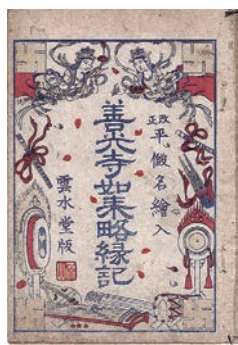 改正平假名繪入
善光寺如來略縁記
雲水堂版